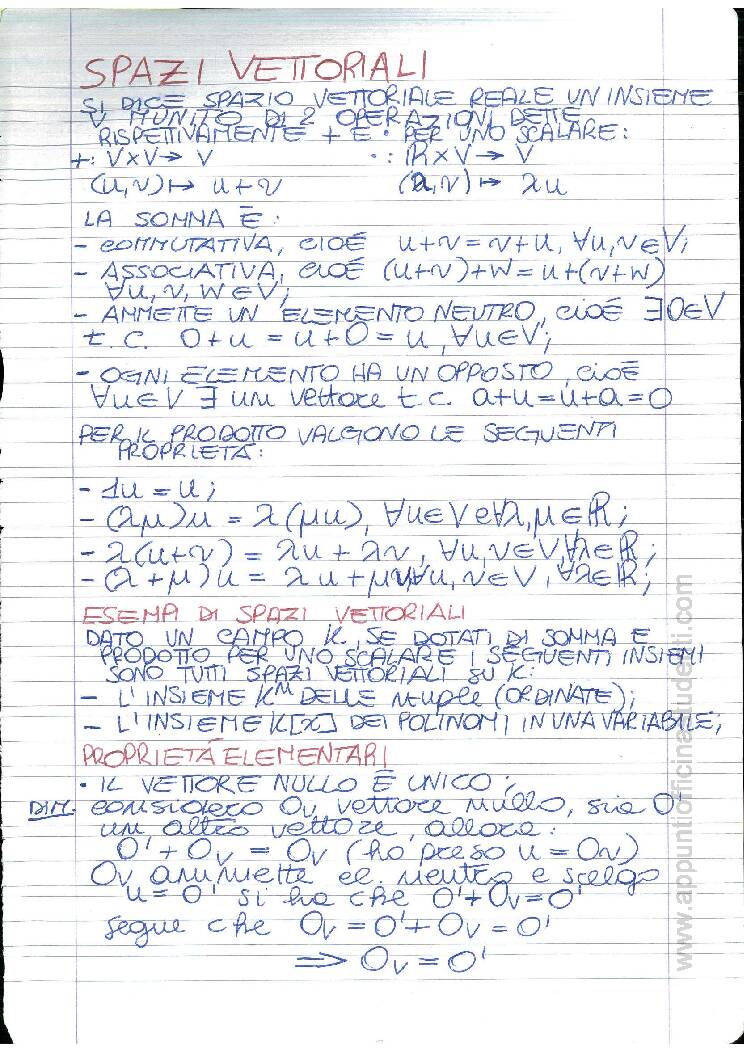 SPAZI VETTORIALI
SI DICE SPAZIO VETTORIALE REALE UN INSIEME
V MUNITO DI 2 OPERAZIONI DETTE
RISPETTIVAMENTE + E · PER UNO SCALARE:
+: V×V → V    · : ℝ×V → V
(u,v) ↦ u+v    (λ,v) ↦ λu
LA SOMMA È:
- COMMUTATIVA, CIOÉ u+v = v+u, ∀u,v∈V;
- ASSOCIATIVA, CIOÉ (u+v)+w = u+(v+w)
∀u, v, w ∈ V;
- AMMETTE UN ELEMENTO NEUTRO, cioé ∃0∈V
t.c. 0+u = u+0 = u, ∀u∈V;
- OGNI ELEMENTO HA UN OPPOSTO, cioé
∀u∈V ∃ un vettore t.c. a+u=u+a=0
PER IL PRODOTTO VALGONO LE SEGUENTI
PROPRIETÀ:
- 1u = u;
- (λμ)u = λ(μu), ∀u∈V e ∀λ,μ∈ℝ;
- λ(u+v) = λu + λv, ∀u,v∈V, ∀λ∈ℝ;
- (λ+μ)u = λu+μu, ∀u,v∈V, ∀λ∈ℝ;
ESEMPI DI SPAZI VETTORIALI
DATO UN CAMPO K, SE DOTATI DI SOMMA E
PRODOTTO PER UNO SCALARE I SEGUENTI INSIEMI
SONO TUTTI SPAZI VETTORIALI SU K:
- L'INSIEME Kⁿ DELLE n-uple (ORDINATE);
- L'INSIEME K[X] DEI POLINOMI IN UNA VARIABILE;
PROPRIETÁ ELEMENTARI
· IL VETTORE NULLO È UNICO;
DIM. considero Oᵥ vettore nullo, sia O'
un altro vettore, allora:
O' + Oᵥ = Oᵥ (ho preso u = Oᵥ)
Oᵥ ammette el. neutro e scelgo
u = O' si ha che O'+Oᵥ = O'
segue che Oᵥ = O'+Oᵥ = O'
⇒ Oᵥ = O'
www.appuntiofficinastudenti.com